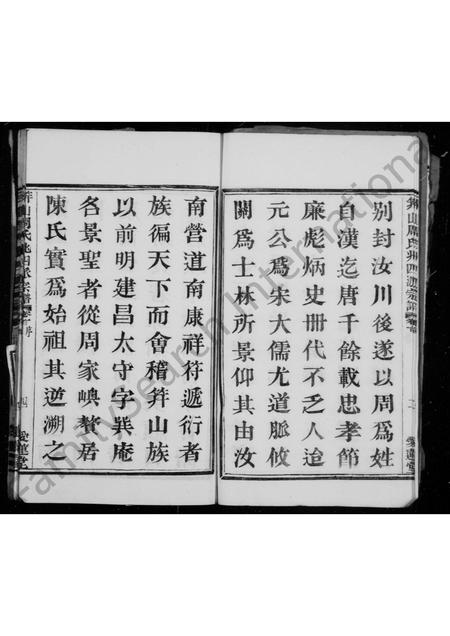 別封汝川後遂以周為姓
自漢迄唐千餘載忠孝節
廉彪炳史冊代不乏人迨
元公為宋大儒尤道脈攸
關為士林所景仰其由汝
南營道南康祥符遞衍者
族徧天下而會稽莽山族
以前明建昌太守字巽庵
名景聖者從周家㠘贅居
陳氏實為始祖其逆溯之
愛蓮堂
FamilySearch International